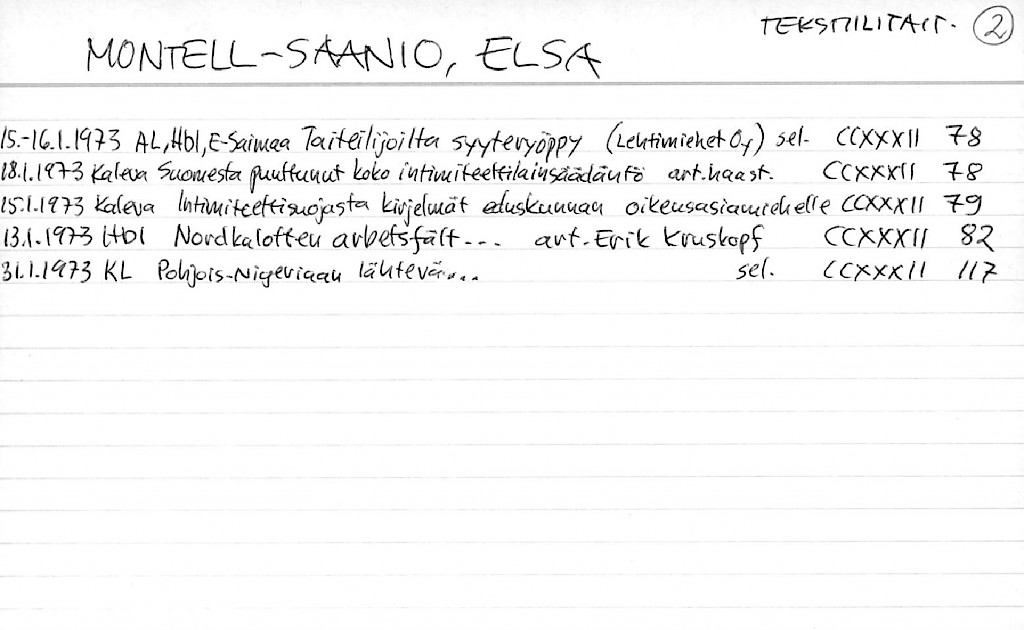 TEKSTIILITAIT. 2
MONTELL-SAANIO, ELSA
15.-16.1.1973 AL, Hbl, E-Saimaa Taiteilijoilta syyteryöppy (Lehtimiehet Oy) sel. CCXXXII 78
18.1.1973 Kaleva Suomesta puuttunut koko intimiteettilainsäädäntö art. haast. CCXXXII 78
15.1.1973 Kaleva Intimiteettisuojasta kirjelmät eduskunnan oikeusasiamiehelle CCXXXII 79
13.1.1973 Hbl Nordkalotten arbetsfält... art. Erik Kruskopf CCXXXII 82
31.1.1973 KL Pohjois-Nigeriaan lähtevä... sel. CCXXXII 117